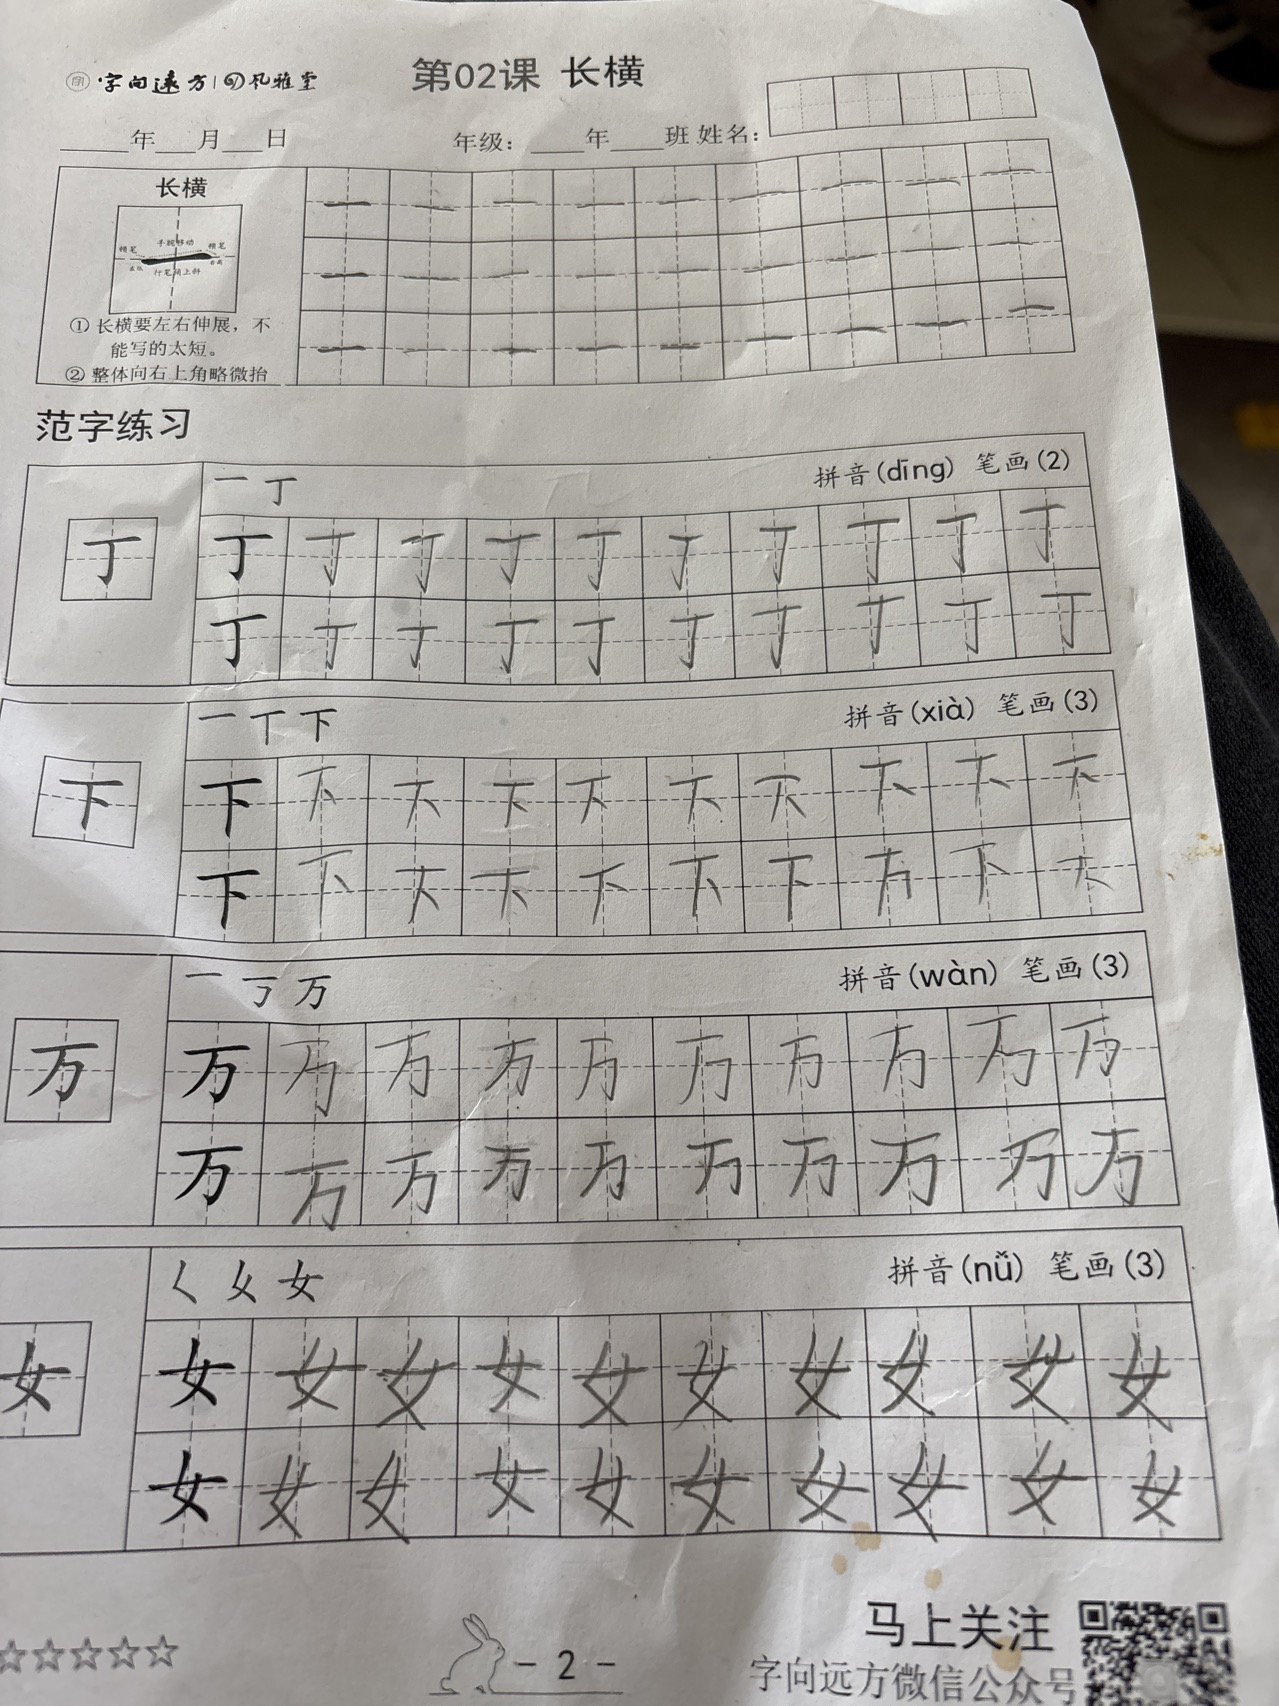 字向远方 | 风雅堂
第02课 长横
年 月 日 年级： 年 班 姓名：
长横
顿笔 手腕移动 顿笔
行笔向上斜
① 长横要左右伸展，不
能写的太短。
② 整体向右上角略微抬
一 一 一 一 一 一 一 一 一
一 一 一 一 一 一 一 一 一
一 一 一 一 一 一 一 一 一
范字练习
一 丁 拼音(dīng) 笔画(2)
丁 丁 丁 丁 丁 丁 丁 丁 丁 丁 丁
丁 丁 丁 丁 丁 丁 丁 丁 丁 丁
一 丅 下 拼音(xià) 笔画(3)
下 下 下 下 下 下 下 下 下 下 下
下 下 下 下 下 下 下 下 下 下
一 丂 万 拼音(wàn) 笔画(3)
万 万 万 万 万 万 万 万 万 万 万
万 万 万 万 万 万 万 万 万 万
𡿨 女 女 拼音(nǚ) 笔画(3)
女 女 女 女 女 女 女 女 女 女 女
女 女 女 女 女 女 女 女 女 女
☆☆☆☆☆
- 2 -
马上关注
字向远方微信公众号